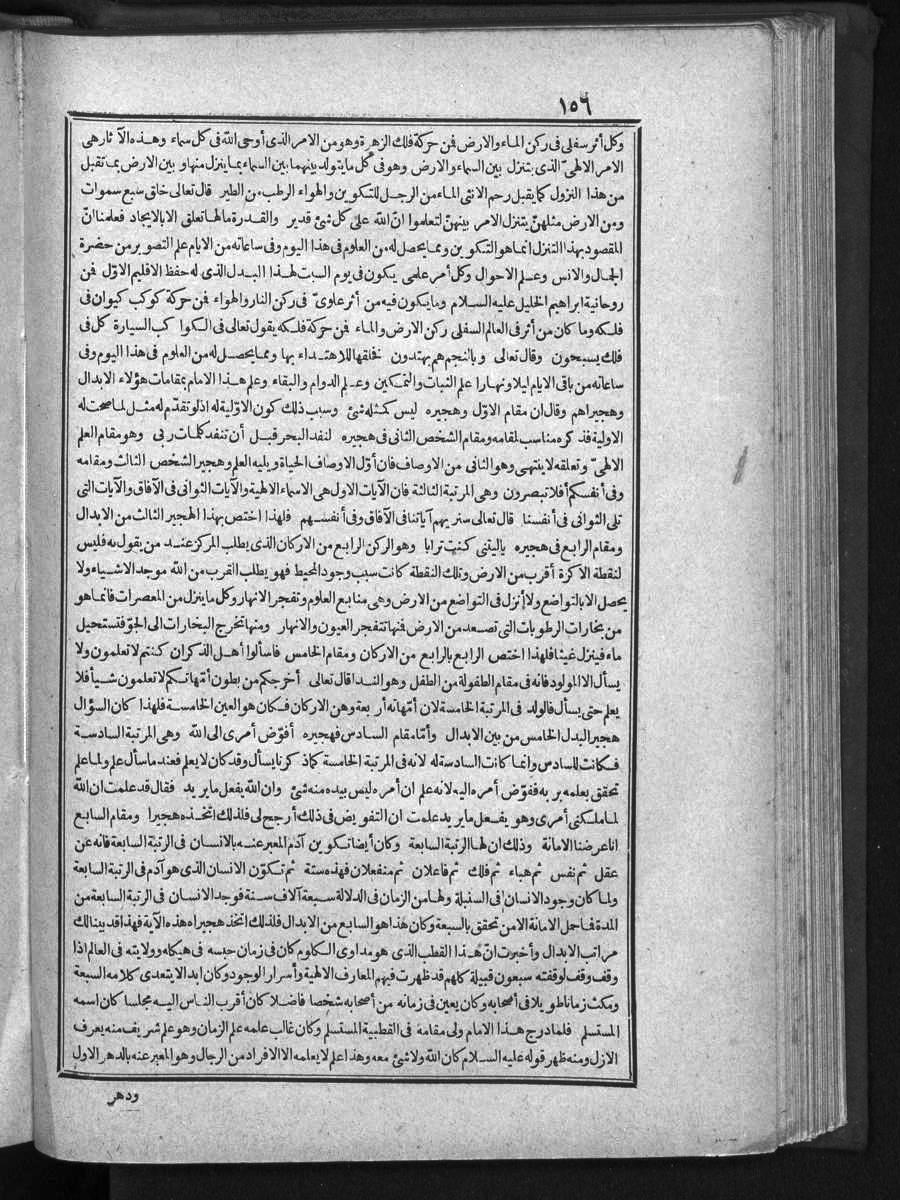 ١٥٦
وكل أثر سفلي في ركن الماء والارض فمن حركة فلك الزهرة وهو من الامر الذي أوحى الله في كل سماء وهذه الآثار هي
الامر الالهيّ الذي يتنزل بين السماء والارض وهو في كل ما يتولد بينهما بين السماء بما ينزل منها وبين الارض بما تقبل
من هذا النزول كما يقبل رحم الانثى الماء من الرجل للتكوين والهواء الرطب من الطير قال تعالى خلق سبع سموات
ومن الارض مثلهنّ يتنزل الامر بينهنّ لتعلموا انّ الله على كل شئ قدير والقدرة مالها تعلق الا بالايجاد فعلمنا انّ
المقصود بهذا التنزل انما هو التكوين ومما يحصل له من العلوم في هذا اليوم وفي ساعاته من الايام علم التصوير من حضرة
الجمال والانس وعلم الاحوال وكل أمر علمى يكون في يوم السبت لهذا البدل الذى له حفظ الاقليم الاوّل فمن
روحانية ابراهيم الخليل عليه السلام وما يكون فيه من أثر علوىّ في ركن النار والهواء فمن حركة كوكب كيوان في
فلكه وما كان من أثر في العالم السفلى ركن الارض والماء فمن حركة فلكه يقول تعالى في الكواكب السيارة كل في
فلك يسبحون وقال تعالى وبالنجم هم يهتدون فخلقها للاهتداء بها ومما يحصل له من العلوم في هذا اليوم وفى
ساعاته من باقى الايام ليلا ونهارا علم الثبات والتمكين وعلم الدوام والبقاء وعلم هذا الامام بمقامات هؤلاء الابدال
وهجيراهم وقال ان مقام الاوّل وهجيره ليس كمثله شئ وسبب ذلك كون الاوّلية له اذ لو تقدّم له مثل لما صحت له
الاولية فذكره مناسب لمقامه ومقام الشخص الثانى في هجيره لنفد البحر قبل أن تنفد كلمات ربى وهو مقام العلم
الالهىّ وتعلقه لا ينتهى وهو الثانى من الاوصاف فان أوّل الاوصاف الحياة ويليه العلم وهجير الشخص الثالث ومقامه
وفى أنفسكم أفلا تبصرون وهى المرتبة الثالثة فان الآيات الاول هى الاسماء الالهية والآيات الثوانى في الآفاق والآيات التى
تلى الثوانى فى أنفسنا قال تعالى سنريهم آياتنا فى الآفاق وفى أنفسهم فلهذا اختص بهذا الهجير الثالث من الابدال
ومقام الرابع في هجيره ياليتنى كنت ترابا وهو الركن الرابع من الاركان الذى يطلب المركز عند من يقول به فليس
لنقطة الاكرة أقرب من الارض وتلك النقطة كانت سبب وجود المحيط فهو يطلب القرب من الله موجد الاشياء ولا
يحصل الا بالتواضع ولا أنزل فى التواضع من الارض وهى منابع العلوم وتفجر الانهار وكل ما ينزل من المعصرات فانما هو
من بخارات الرطوبات التى تصعد من الارض فمنها تتفجر العيون والانهار ومنها تخرج البخارات الى الجوّ فتستحيل
ماء فينزل غيثا فلهذا اختص الرابع بالرابع من الاركان ومقام الخامس فاسألوا أهل الذكر ان كنتم لا تعلمون ولا
يسأل الا المولود فانه فى مقام الطفولة من الطفل وهو الندا قال تعالى أخرجكم من بطون أمّهاتكم لا تعلمون شيأ فلا
يعلم حتى يسأل فالولد فى المرتبة الخامسة لان أمّهاته أربعة وهن الاركان فكان هو العين الخامسة فلهذا كان السؤال
هجير البدل الخامس من بين الابدال وأمّا مقام السادس فهجيره أفوّض أمرى الى الله وهى المرتبة السادسة
فكانت للسادس وانما كانت السادسة له لانه فى المرتبة الخامسة كما ذكرنا يسأل وقد كان لا يعلم فعند ما سأل علم ولما علم
تحقق بعلمه بربه ففوّض أمره اليه لانه علم ان أمره ليس بيده منه شئ وان الله يفعل ما يريد فقال قد علمت ان الله
لما ملكنى أمرى وهو يفعل ما يريد علمت ان التفويض في ذلك أرجح لى فلذلك اتخذه هجيرا ومقام السابع
انا عرضنا الامانة وذلك ان لها الرتبة السابعة وكان أيضا تكوين آدم المعبر عنه بالانسان فى الرتبة السابعة فانه عن
عقل ثم نفس ثم هباء ثم فلك ثم فاعلان ثم منفعلان فهذه ستة ثم تكوّن الانسان الذى هو آدم فى الرتبة السابعة
ولما كان وجود الانسان فى السنبلة ولها من الزمان فى الدلالة سبعة آلاف سنة فوجد الانسان فى الرتبة السابعة من
المدة فما حمل الامانة الا من تحقق بالسبعة وكان هذا هو السابع من الابدال فلذلك اتخذ هجيراه هذه الآية فهذا قد بينا لك
مراتب الابدال وأخبرت انّ هذا القطب الذى هو مداوى الكلوم كان فى زمان حبسه فى هيكله وولايته فى العالم اذا
وقف وقف لوقفته سبعون قبيلة كلهم قد ظهرت فيهم المعارف الالهية وأسرار الوجود وكان ابدا لا يتعدى كلامه السبعة
ومكث زمانا طويلا فى أصحابه وكان يعين فى زمانه من أصحابه شخصا فاضلا كان أقرب الناس اليه مجلسا كان اسمه
المستسلم فلما درج هذا الامام ولى مقامه فى القطبية المستسلم وكان غالب علمه علم الزمان وهو علم شريف منه يعرف
الازل ومنه ظهر قوله عليه السلام كان الله ولا شئ معه وهذا علم لا يعلمه الا الافراد من الرجال وهو المعبر عنه بالدهر الاول
ودهر